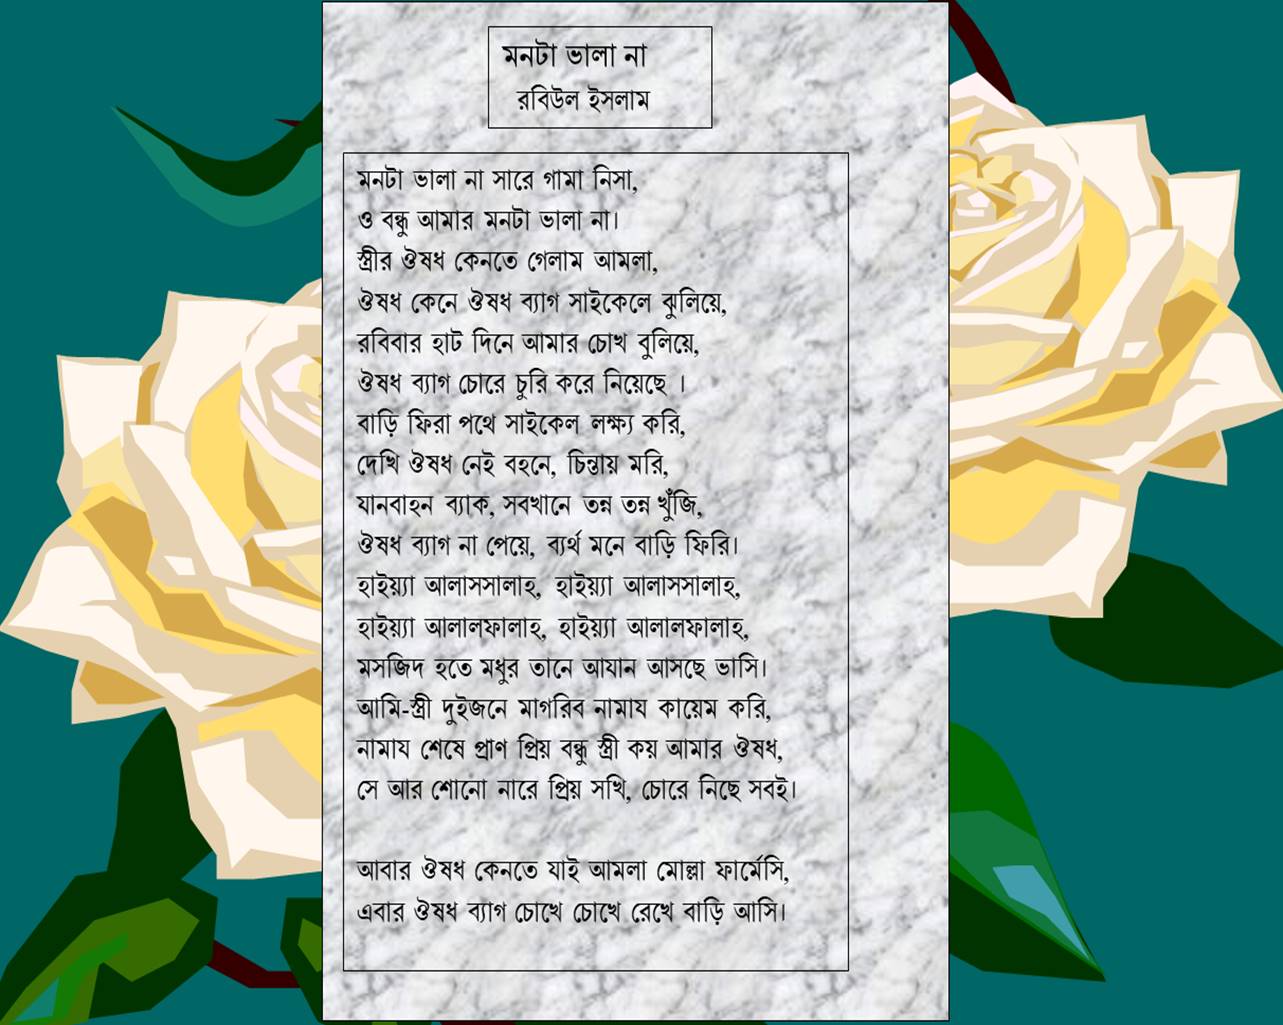 মনটা ভালা না
রবিউল ইসলাম
মনটা ভালা না সারে গামা নিসা,
ও বন্ধু আমার মনটা ভালা না।
স্ত্রীর ঔষধ কেনতে গেলাম আমলা,
ঔষধ কেনে ঔষধ ব্যাগ সাইকেলে ঝুলিয়ে,
রবিবার হাট দিনে আমার চোখ বুলিয়ে,
ঔষধ ব্যাগ চোরে চুরি করে নিয়েছে ।
বাড়ি ফিরা পথে সাইকেল লক্ষ্য করি,
দেখি ঔষধ নেই বহনে, চিন্তায় মরি,
যানবাহন ব্যাক, সবখানে তন্ন তন্ন খুঁজি,
ঔষধ ব্যাগ না পেয়ে, ব্যর্থ মনে বাড়ি ফিরি।
হাইয়্যা আলাসসালাহ, হাইয়্যা আলাসসালাহ,
হাইয়্যা আলালফালাহ, হাইয়্যা আলালফালাহ,
মসজিদ হতে মধুর তানে আযান আসছে ভাসি।
আমি-স্ত্রী দুইজনে মাগরিব নামায কায়েম করি,
নামায শেষে প্রাণ প্রিয় বন্ধু স্ত্রী কয় আমার ঔষধ,
সে আর শোনো নারে প্রিয় সখি, চোরে নিছে সবই।
আবার ঔষধ কেনতে যাই আমলা মোল্লা ফার্মেসি,
এবার ঔষধ ব্যাগ চোখে চোখে রেখে বাড়ি আসি।